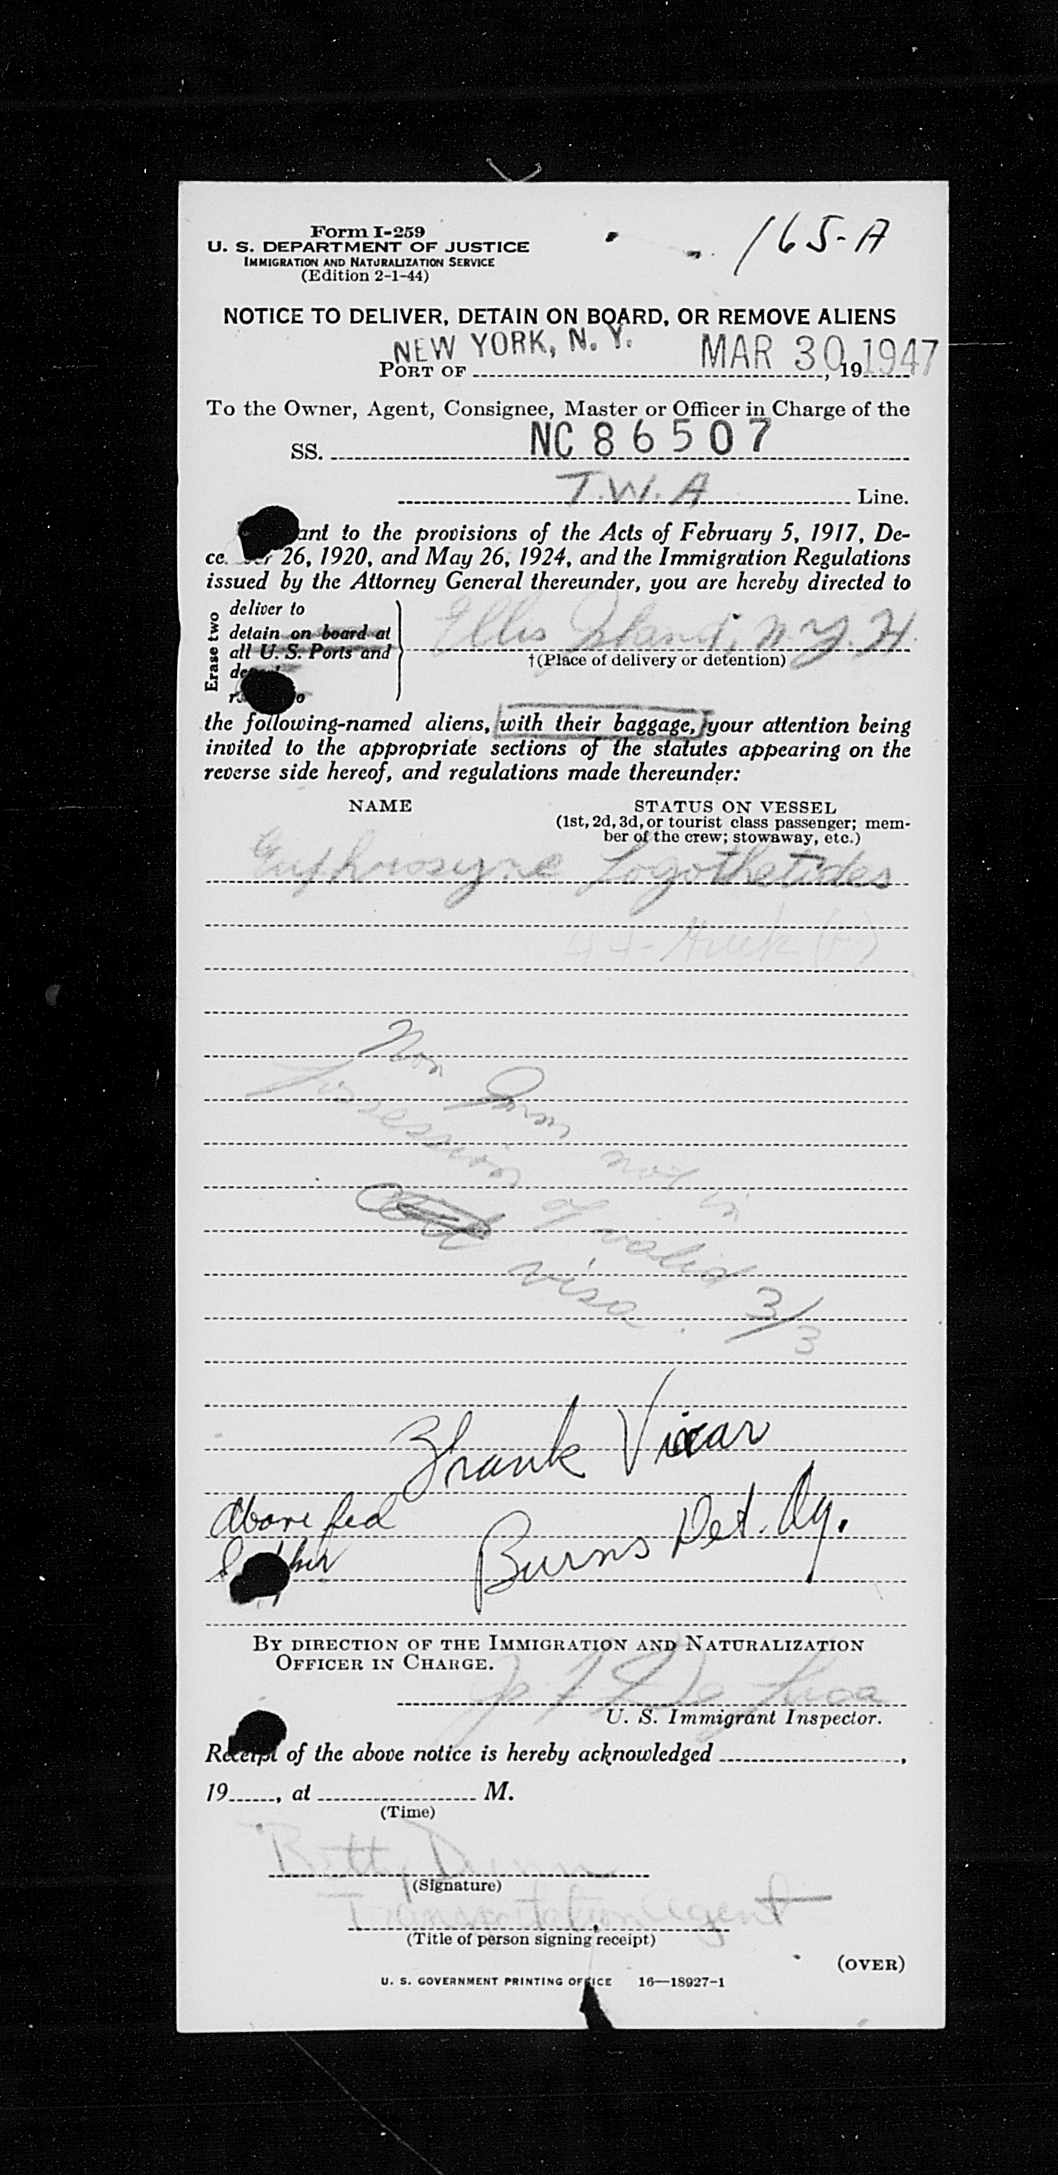 165-A
Form I-259
U. S. DEPARTMENT OF JUSTICE
IMMIGRATION AND NATURALIZATION SERVICE
(Edition 2-1-44)
NOTICE TO DELIVER, DETAIN ON BOARD, OR REMOVE ALIENS
NEW YORK, N. Y. MAR 30 1947
PORT OF , 19
To the Owner, Agent, Consignee, Master or Officer in Charge of the
SS. NC 86507
T.W.A Line.
ant to the provisions of the Acts of February 5, 1917, De-
ce 26, 1920, and May 26, 1924, and the Immigration Regulations
issued by the Attorney General thereunder, you are hereby directed to
Erase two
deliver to
detain on board at
all U. S. Ports and
Ellis Island, N.Y.H.
†(Place of delivery or detention)
the following-named aliens, with their baggage, your attention being
invited to the appropriate sections of the statutes appearing on the
reverse side hereof, and regulations made thereunder:
NAME STATUS ON VESSEL
(1st, 2d, 3d, or tourist class passenger; mem-
ber of the crew; stowaway, etc.)
Euphrosyne Logothetides
Non Imm not in
Possession of valid
visa. 3/3
Frank
Burns Det. Ag.
Above
BY DIRECTION OF THE IMMIGRATION AND NATURALIZATION
OFFICER IN CHARGE.
U. S. Immigrant Inspector.
Receipt of the above notice is hereby acknowledged ,
19 , at M.
(Time)
Betty Dunn
(Signature)
Transportation agent
(Title of person signing receipt)
(OVER)
U. S. GOVERNMENT PRINTING OFFICE 16—18927-1